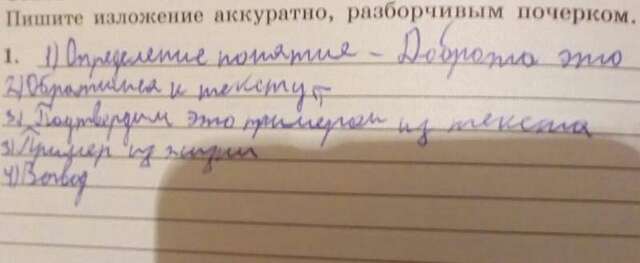 Пишите изложение аккуратно, разборчивым почерком.
1. 1) Определение понятия - Доброта это
2) Обратимся к тексту
3) Подтвердим это примером из текста
3) Пример из жизни
4) Вывод